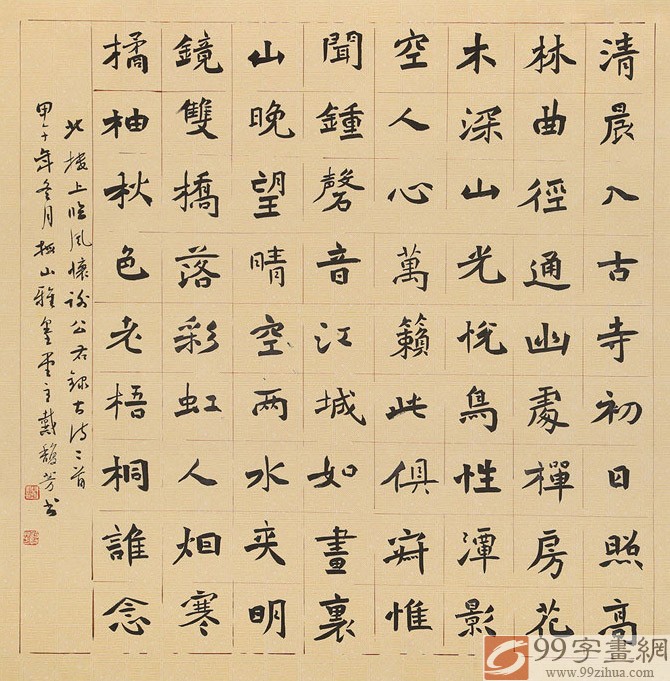 清晨入古寺初日照高
林曲徑通幽處禪房花
木深山光悅鳥性潭影
空人心萬籟此俱寂惟
聞鍾磬音江城如畫裏
山晚望晴空兩水夾明
鏡雙橋落彩虹人烟寒
橘柚秋色老梧桐誰念
北樓上臨風懷謝公右錄古诗二首
甲午年冬月山雅墨堂主戴馥芳书
99字畫網
www.99zihua.com